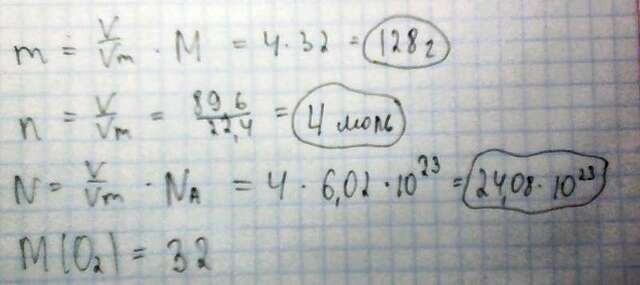 m = V/Vm · M = 4 · 32 = 128 г
n = V/Vm = 89,6/22,4 = 4 моль
N = V/Vm · NA = 4 · 6,02 · 10²³ = 24,08 · 10²³
M(O₂) = 32